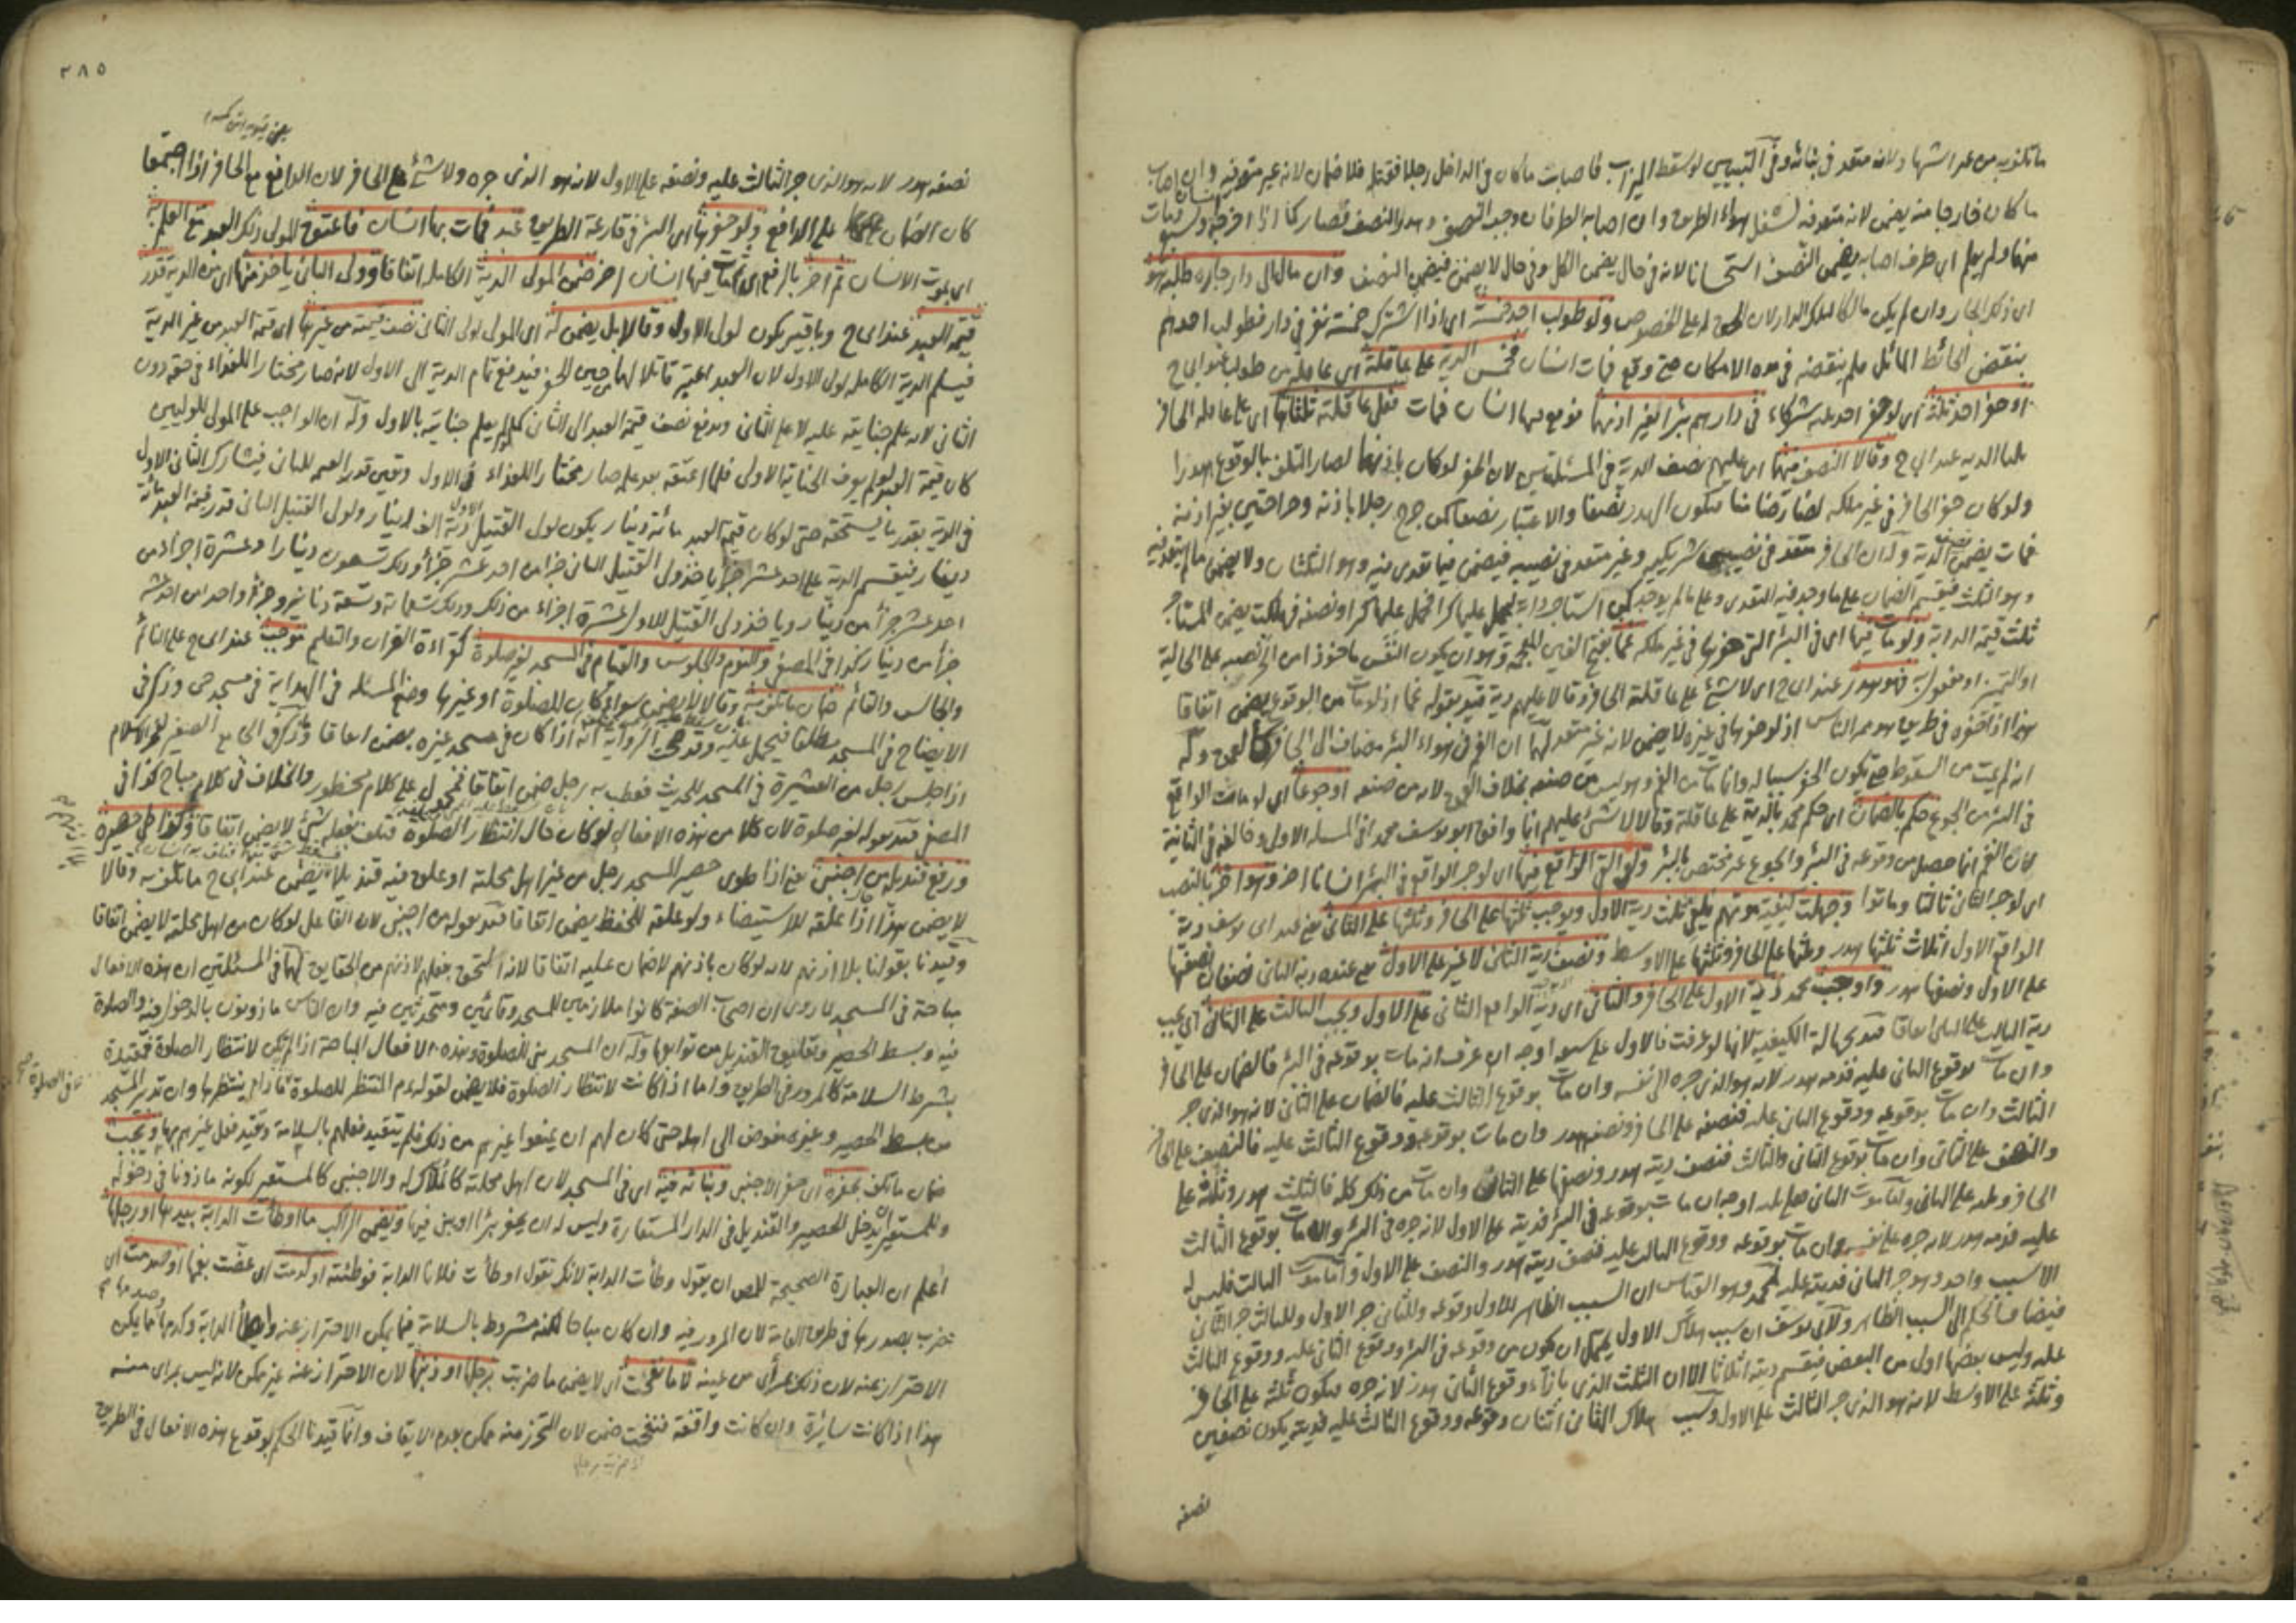 ما تلف به من عند اشهاد ولانه متعد في بنائه وفي التبيين لو سقط الميزاب فاصابت ما كان في الداخل رجلا فقتله فلا ضمان لانه غير متعد فيه وان اصاب
ما كان خارجا منه يضمن لانه متعد فيه لشغل هواء الطريق وان اصابه الطرفان وجب النصف وهدر النصف فصار كما اذا
منها ولم يعلم اي طرف اصابه يضمن النصف استحسانا لانه في حال يضمن الكل وفي حال لا يضمن فيضمن النصف وان مال الى دار جاره طلبه هو
اي ذلك الجار وان لم يكن مالكا لتلك الدار لان الحق له على الخصوص ولو طولب احد خمسة اي اذا اشترك خمسة نفر في دار فطولب احدهم
بنقض الحائط المائل فلم ينقضه في مدة الامكان حتى وقع فمات انسان فخمس الدية على عاقلة اي عاقلة من طولب عند ابي ح
او حفر احد ثلثة اي لو حفر احد ثلثة شركاء في دارهم بئرا بغير اذنهما فوقع فيها انسان فمات فعلى عاقلته ثلثاها اي على عاقلة الحافر
ثلثا الدية عند ابي ح وقالا النصف فيهما اي عليهم نصف الدية في المسئلتين لان الحفر لو كان باذنهما لصار التلف بالوقوع هدرا
ولو كان حفر الحافر في غير ملكه لصار ضامنا فيكون الهدر نصفا والاعتبار نصفا كمن جرح رجلا باذنه وجراحتين بغير اذنه
فمات يضمن نصف الدية وله ان الحافر متعد في نصيب شريكيه وغير متعد في نصيبه فيضمن فيما تعدى فيه وهو الثلثان ولا يضمن ما لم يتعد فيه
وهو الثلث فيقسم الضمان على ما وجد فيه التعدي وعلى ما لم يوجد كمن استأجر دابة ليحمل عليها كرا فحمل عليها كرا ونصفه فهلكت يضمن المستأجر
ثلث قيمة الدابة ولو مات فيها اي في البئر التي حفرها في غير ملكه غما بفتح الغين المعجمة وهو ان يكون النفس ماخوذا من الحر نصبه على الحالية
او التمييز او مفعول به فهو هدر عند ابي ح اي لا شئ على عاقلة الحافر وقالا عليهم دية قيد بقوله غما اذ لو مات من الوقوع يضمن اتفاقا
هذا اذا حفره في طريق هو ممر الناس اذ لو حفرها في غيره لا يضمن لانه غير متعد لهما ان الغم في هواء البئر مضاف الى الحافر كالجوع وله
انه لم يمت من السقوط حتى يكون الحفر سببا له وانما مات من الغم وهو ليس من صنعه بخلاف الوقوع لانه من صنعه او جوعا اي لو مات الواقع
في البئر من الجوع حكم بالضمان اي حكم محمد بالدية على عاقلته وقالا لا شئ عليهم ابا وافق ابو يوسف محمدا في المسئلة الاولى وخالفه في الثانية
لان الغم انما حصل من وقوعه في البئر والجوع غير مختص بالبئر ولو القى الواقع فيها اي لو جر الواقع في البئر انسانا اخر وهو اخر بالنصب
اي لو جر الثاني ثالثا وماتوا وجهلت كيفية موتهم يلغى ثلث دية الاول ويوجب ثلثها على الحافر وثلثها على الثاني يعني عند ابي يوسف دية
الواقع الاول اثلاث ثلثها هدر وثلثها على الحافر وثلثها على الاوسط ونصف دية الثاني لا غير على الاول يعني عنده دية الثاني نصفان نصفها
على الاول ونصفها هدر واوجب محمد دية الاول على الحافر والثاني اي دية الواقع الثاني على الاول ويجب الثالث على الثاني اي يجب
دية الثالث على الثاني اتفاقا قيد بجهالة الكيفية لانها لو عرفت فالاول على سبعة اوجه ان عرف انه مات بوقوعه في البئر فالضمان على الحافر
وان مات بوقوع الثاني عليه فدمه هدر لانه هو الذي جره الى نفسه وان مات بوقوع الثالث عليه فالضمان على الثاني لانه هو الذي جر
الثالث وان مات بوقوعه ووقوع الثاني عليه فنصفه على الحافر ونصفه هدر وان مات بوقوعه ووقوع الثالث عليه فالنصف على الحافر
والنصف على الثاني وان مات بوقوع الثاني والثالث فنصف ديته هدر ونصفها على الثاني وان مات من ذلك كله فالثلث هدر وثلثه على
الحافر وثلثه على الثاني واما موت الثاني فعلى ثلثة اوجه ان مات بوقوعه في البئر فديته على الاول لانه جره في البئر وان مات بوقوع الثالث
عليه فدمه هدر لانه جره على نفسه وان مات بوقوعه ووقوع الثالث عليه فنصف ديته هدر والنصف على الاول واما موت الثالث فليس له
الا سبب واحد وهو جر الثاني فديته عليه لمحمد وهو القياس ان السبب الظاهر للاول وقوعه وللثاني جر الاول وللثالث جر الثاني
فيضاف الحكم الى السبب الظاهر ولابي يوسف ان سبب هلاك الاول يحتمل ان يكون من وقوعه في البئر ووقوع الثاني عليه ووقوع الثالث
عليه وليس بعضها اولى من البعض فيقسم ديته اثلاثا الا ان الثلث الذي بازاء وقوع الثاني هدر لانه جره فيكون ثلثه على الحافر
وثلثه على الاوسط لانه هو الذي جر الثالث على الاول وسبب هلاك الثاني اثنان وقوعه ووقوع الثالث عليه فديته يكون نصفين
نصفه
٢٨٥
نصفه هدر لانه هو الذي جر الثالث عليه ونصفه على الاول لانه هو الذي جره ولا شئ على الحافر لان الدافع مع الحافر اذا اجتمعا
كان الضمان على الدافع ولو حفرها اي البئر في قارعة الطريق عبد فمات بها انسان فاعتق المولى ذلك العبد مع العلم به
اي بموت الانسان ثم اخر بالرفع اي مات فيها انسان اخر ضمن المولى الدية الكاملة اتفاقا وولي الثاني ياخذ منها اي من الدية قدر
قيمة العبد عند ابي ح وباقيه يكون لولي الاول وقالا بل يضمن له اي المولى لولي الثاني نصف قيمته من غيرها اي قيمة العبد من غير الدية
فيسلم الدية الكاملة لولي الاول لان العبد اعتبر قاتلا لهما حين الحفر فيدفع تمام الدية الى الاول لانه صار مختارا للفداء في حقه دون
الثاني لانه علم جنايته عليه لا على الثاني ويدفع نصف قيمة العبد الى الثاني كما لو لم يعلم جنايته بالاول وله ان الواجب على المولى للوليين
كان قيمة العبد لو لم يعرف الجناية الاولى فلما اعتقه بعد علمه صار مختارا للفداء في الاول وبقي قدر القيمة للثاني فيشارك الثاني الاول
في الدية بقدر ما يستحقه حتى لو كان قيمة العبد مائة دينار يكون لولي القتيل الاول دية الف دينار ولولي القتيل الثاني قدر قيمة العبد مائة
دينار فيقسم الدية على احد عشر جزأ ياخذ ولي القتيل الثاني جزأ من احد عشر جزأ وذلك تسعون دينارا وعشرة اجزاء من
احد عشر جزأ من دينار وياخذ ولي القتيل الاول عشرة اجزاء من ذلك وذلك تسعمائة وتسعة دنانير وجزأ واحد من احد عشر
جزأ من دينار كذا في المصفى والنوم والجلوس والقيام في المسجد لغير صلوة كقراءة القران والتعليم موجب عند ابي ح على النائم
والجالس والقائم ضمان ما تلف به وقالا لا يضمن سواء كان للصلوة او غيرها وضع المسئلة في الهداية في مسجد حي وذكر في
الايضاح في المسجد مطلقا فيحمل عليه وقد صحت الرواية انه اذا كان في مسجد غيره يضمن اتفاقا وذكر في الجامع الصغير لفخر الاسلام
اذا جلس رجل من العشيرة في المسجد للحديث فعطب به رجل ضمن اتفاقا فحمل على كلام محظور والخلاف في كلام مباح كذا في
المصفى قيد بقوله لغير صلوة لان كلا من هذه الافعال لو كان حال انتظار الصلوة فتلف بفعله شئ لا يضمن اتفاقا وكذا طي حصيره
ورفع قنديله من اجنبي يعني اذا طوى حصير المسجد رجل من غير اهل محلته او علق فيه قنديلا يضمن عند ابي ح ما تلف به وقالا
لا يضمن هذا اذا علقه للاستيضاء ولو علقه للحفظ يضمن اتفاقا قيد بقوله من اجنبي لان الفاعل لو كان من اهل محلته لا يضمن اتفاقا
وقيدنا بقولنا بلا اذنهم لانه لو كان باذنهم لا ضمان عليه اتفاقا لانه التحق بفعلهم لاذنهم من الحقايق لهما في المسئلتين ان هذه الافعال
مباحة في المسجد لما روي ان اصحاب الصفة كانوا ملازمين للمسجد وقائمين ومتحدثين فيه وان الناس ماذونون بالدخول فيه والصلوة
فيه وبسط الحصير وتعليق القنديل من توابعها وله ان المسجد بني للصلوة وهذه الافعال المباحة اذا لم تكن لانتظار الصلوة فمقيدة
بشرط السلامة كالمرور في الطريق واما اذا كانت لانتظار الصلوة فلا يضمن لقوله ءم المنتظر للصلوة مادام ينتظرها وان تدبير المسجد
من بسط الحصير وغيره مفوض الى اهله حتى كان لهم ان يمنعوا غيرهم من ذلك فلم يتقيد فعلهم بالسلامة وتقيد فعل غيرهم بها ويجب
ضمان ما تلف بحفره اي حفر الاجنبي وبنائه فيه اي في المسجد لان اهل محلته كالملاك له والاجنبي كالمستعير لكونه ماذونا في دخوله
وللمستعير ان يدخل الحصير والقنديل في الدار المستعارة وليس له ان يحفر بئرا او يبني فيها ويضمن الراكب ما اوطأت الدابة بيدها او رجلها
اعلم ان العبارة الصحيحة للمص ان يقول وطأت الدابة لانك تقول اوطأت فلانا الدابة فوطئته او كدمت اي عضت بفمها او صدمت اي
ضرب بصدرها في طريق العامة لان المرور فيه وان كان مباحا لكنه مشروط بالسلامة فيما يمكن الاحتراز عنه وايطأ الدابة وكدمها مما يمكن
الاحتراز عنه لان ذلك بمرأى من عينه لا ما نفحت اي لا يضمن ما ضربت برجلها او ذنبها لان الاحتراز عنه غير ممكن لانه ليس بمرأى منه
هذا اذا كانت سائرة وان كانت واقفة فنفحت ضمن لان التحرز منه ممكن بعدم الايقاف وانما قيدنا الحكم بوقوع هذه الافعال في الطريق